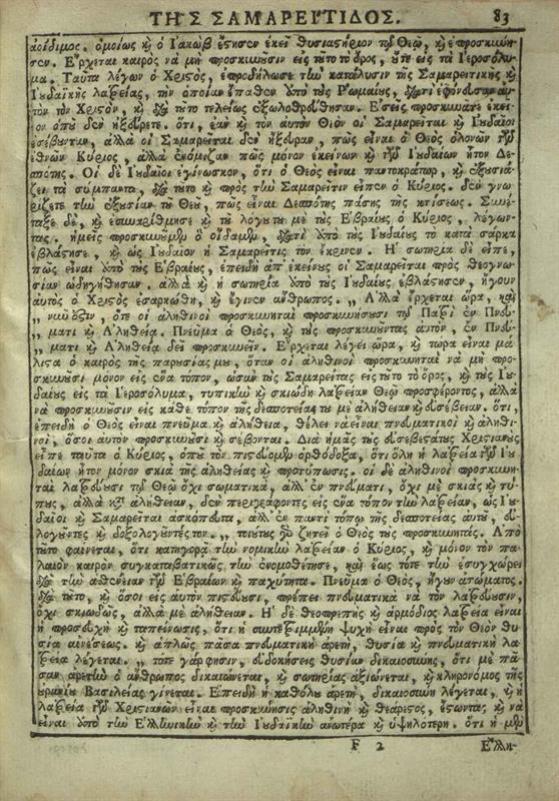 ΤΗΣ ΣΑΜΑΡΕΙΤΙΔΟΣ. 83
ἀοίδιμος. ὁμοίως καὶ ὁ Ἰακὼβ ἔστησεν ἐκεῖ θυσιαστήριον τῷ Θεῷ, καὶ ἐπροσκύνη-
σεν. Ἔρχεται καιρὸς νὰ μὴ προσκυνήσιν εἰς τοῦτο τὸ ὄρος, οὔτε εἰς τὰ Ἱεροσόλυ-
μα. Ταῦτα λέγων ὁ Χριστὸς, ἐπροδήλωσε τὴν κατάλυσιν τῆς Σαμαρειτικῆς καὶ
Ἰουδαϊκῆς λατρείας, τὴν ὁποίαν ἔπαθεν ὑπὸ τοὺς Ῥωμαίους, διατὶ ἐφόνευσαν αὐ-
τὸν τὸν Χριστὸν, καὶ διὰ τοῦτο τελείως ἐξωλοθρεύθησαν. Ἐσεῖς προσκυνᾶτε ἐκεῖ-
νον ὁποῦ δὲν ἠξεύρετε. ὅτι, ἐὰν καὶ τὸν αὐτὸν Θεὸν οἱ Σαμαρεῖται καὶ Ἰουδαῖοι
ἐσέβονταν, ἀλλὰ οἱ Σαμαρεῖται δὲν ἤξευραν, πῶς εἶναι ὁ Θεὸς ὁλονῶν τῶν
ἐθνῶν Κύριος, ἀλλὰ ἐνόμιζαν πῶς μόνον ἐκείνων καὶ τῶν Ἰουδαίων ἦτον Δε-
σπότης. Οἱ δὲ Ἰουδαῖοι ἐγίνωσκον, ὅτι ὁ Θεὸς εἶναι παντοκράτωρ, καὶ ἐξουσιά-
ζει τὰ σύμπαντα, διὰ τοῦτο καὶ πρὸς τὴν Σαμαρεῖτιν εἶπεν ὁ Κύριος. δὲν γνω-
ρίζετε τὴν ἐξουσίαν τοῦ Θεοῦ, πῶς εἶναι Δεσπότης πάσης τῆς κτίσεως. Συνέ-
ταξε δὲ, καὶ ἐσυναρίθμησε καὶ τοῦ λόγου του μὲ τοὺς Ἑβραίους ὁ Κύριος, λέγων-
τας. ἡμεῖς προσκυνοῦμεν ὃ οἴδαμεν, διατὶ ὑπὸ τοὺς Ἰουδαίους τὸ κατὰ σάρκα
ἐβλάστησε, καὶ ὡς Ἰουδαῖον ἡ Σαμαρεῖτις τὸν ἔκρινεν. Ἡ σωτηρία δὲ εἶπε,
πῶς εἶναι ὑπὸ τοὺς Ἑβραίους, ἐπειδὴ ἀπ' ἐκείνους οἱ Σαμαρεῖται πρὸς θεογνω-
σίαν ὡδηγήθησαν. ἀλλὰ καὶ ἡ σωτηρία ὑπὸ τοὺς Ἰουδαίους ἐβλάστησεν, ἤγουν
αὐτὸς ὁ Χριστὸς ἐσαρκώθη, καὶ ἔγινεν ἄνθρωπος. „ Ἀλλὰ ἔρχεται ὥρα, καὶ
„ νῦν ἐστιν, ὅτε οἱ ἀληθινοὶ προσκυνηταὶ προσκυνήσουσι τῷ Πατρὶ ἐν Πνεύ-
„ ματι καὶ Ἀληθείᾳ. Πνεῦμα ὁ Θεὸς, καὶ τοὺς προσκυνοῦντας αὐτὸν, ἐν Πνεύ-
„ ματι καὶ Ἀληθείᾳ δεῖ προσκυνεῖν. Ἔρχεται λέγει ὥρα, καὶ τώρα εἶναι μά-
λιστα ὁ καιρὸς τῆς παρουσίας μου, ὅταν οἱ ἀληθινοὶ προσκυνηταὶ νὰ μὴ προ-
σκυνοῦσι μόνον εἰς ἕνα τόπον, ὡσὰν τοὺς Σαμαρείτας εἰς τοῦτο τὸ ὄρος, καὶ τοὺς Ἰου-
δαίους εἰς τὰ Ἱεροσόλυμα, τυπικὴν καὶ σκιώδη λατρείαν Θεῷ προσφέροντες, ἀλλὰ
νὰ προσκυνήσιν εἰς κάθε τόπον τῆς δεσποτείας του μὲ ἀλήθειαν καὶ εὐσέβειαν. ὅτι,
ἐπειδὴ ὁ Θεὸς εἶναι πνεῦμα καὶ ἀλήθεια, θέλει νὰ εἶναι πνευματικοὶ καὶ ἀληθι-
νοὶ, ὅσοι αὐτὸν προσκυνοῦσι καὶ σέβονται. Διὰ ἡμᾶς τοὺς εὐσεβεστάτους Χριστιανοὺς
εἶπε ταῦτα ὁ Κύριος, ὁποῦ τὸν πιστεύομεν ὀρθόδοξα, ὅτι ὅλη ἡ λατρεία τῶν Ἰου-
δαίων ἦτον μόνον σκιὰ τῆς ἀληθείας καὶ προτύπωσις. οἱ δὲ ἀληθινοὶ προσκυνη-
ταὶ λατρεύουσι τῷ Θεῷ ὄχι σωματικὰ, ἀλλ' ἐν πνεύματι, ὄχι μὲ σκιὰς καὶ τύ-
πους, ἀλλὰ κατὰ ἀλήθειαν, δὲν περιγράφοντες εἰς ἕνα τόπον τὴν λατρείαν, ὡς Ἰου-
δαῖοι καὶ Σαμαρεῖται ἀσκόπευτα, ἀλλ' ἐν παντὶ τόπῳ τῆς δεσποτείας αὐτοῦ, εὐ-
λογοῦντες καὶ δοξολογοῦντές τον. „ τοιούτους γὰρ ζητεῖ ὁ Θεὸς τοὺς προσκυνητάς. Ἀπὸ
τοῦτο φαίνεται, ὅτι κατηγορᾷ τὴν νομικὴν λατρείαν ὁ Κύριος, καὶ μόνον τὸν πα-
λαιὸν καιρὸν συγκαταβατικῶς τὴν ἐνομοθέτησε, καὶ ἕως τότε τὴν ἐσυγχώρει
διὰ τὴν ἀσθένειαν τῶν Ἑβραίων καὶ παχύτητα. Πνεῦμα ὁ Θεὸς, ἤγουν ἀσώματος.
διὰ τοῦτο, καὶ ὅσοι εἰς αὐτὸν πιστεύουσι, πρέπει πνευματικὰ νὰ τὸν λατρεύουσιν,
ὄχι σκιωδῶς, ἀλλὰ μὲ ἀλήθειαν. Ἡ δὲ θεοπρεπὴς καὶ ἁρμόδιος λατρεία εἶναι
ἡ προσευχὴ καὶ ταπείνωσις, ὅτι ἡ συντετριμμένη ψυχὴ εἶναι πρὸς τὸν Θεὸν θυ-
σία αἰνέσεως. καὶ ἁπλῶς πᾶσα πνευματικὴ ἀρετὴ, θυσία καὶ πνευματικὴ λα-
τρεία λέγεται. „ τότε γάρ φησιν, εὐδοκήσεις θυσίαν δικαιοσύνης, ὅτι μὲ πᾶ-
σαν ἀρετὴν ὁ ἄνθρωπος δικαιώνεται, καὶ σωτηρίας ἀξιώνεται, καὶ κληρονόμος τῆς
οὐρανίου Βασιλείας γίνεται. Ἐπειδὴ ἡ καθόλου ἀρετὴ, δικαιοσύνη λέγεται, καὶ ἡ
λατρεία τῶν Χριστιανῶν εἶναι προσκύνησις ἀληθινὴ καὶ θεάρεστος, ἔστωντας καὶ νὰ
εἶναι ὑπὸ τὴν Ἑλληνικὴν καὶ τὴν Ἰουδαϊκὴν ἀνωτέρα καὶ ὑψηλοτέρη. ὅτι ἡ μὲν
F 2 Ἑλλη-